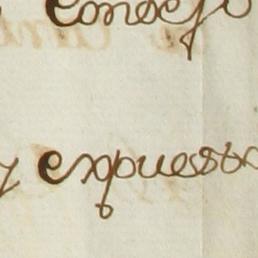 Consejo
y expuesso